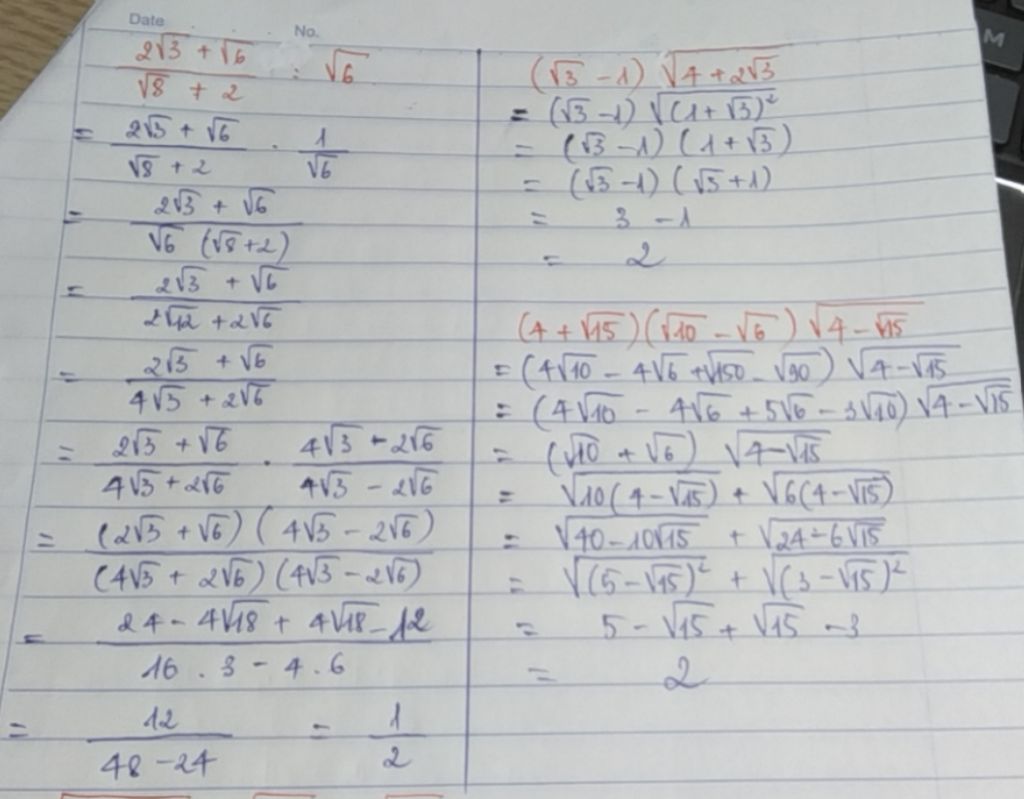 Date
No.
(2√3 + √6)/(√8 + 2) : √6
= (2√3 + √6)/(√8 + 2) . 1/√6
= (2√3 + √6)/(√6 (√8+2))
= (2√3 + √6)/(2√12 + 2√6)
= (2√3 + √6)/(4√3 + 2√6)
= (2√3 + √6)/(4√3 + 2√6) . (4√3 - 2√6)/(4√3 - 2√6)
= ((2√3 + √6)(4√3 - 2√6))/((4√3 + 2√6)(4√3 - 2√6))
= (24 - 4√18 + 4√18 - 12)/(16 . 3 - 4 . 6)
= 12/(48 - 24) = 1/2
(√3 - 1) √(4 + 2√3)
= (√3 - 1) √((1 + √3)²)
= (√3 - 1) (1 + √3)
= (√3 - 1) (√3 + 1)
= 3 - 1
= 2
(4 + √15)(√10 - √6) √(4 - √15)
= (4√10 - 4√6 + √150 - √90) √(4 - √15)
= (4√10 - 4√6 + 5√6 - 3√10) √(4 - √15)
= (√10 + √6) √(4 - √15)
= √(10(4 - √15)) + √(6(4 - √15))
= √(40 - 10√15) + √(24 - 6√15)
= √((5 - √15)²) + √((3 - √15)²)
= 5 - √15 + √15 - 3
= 2
M